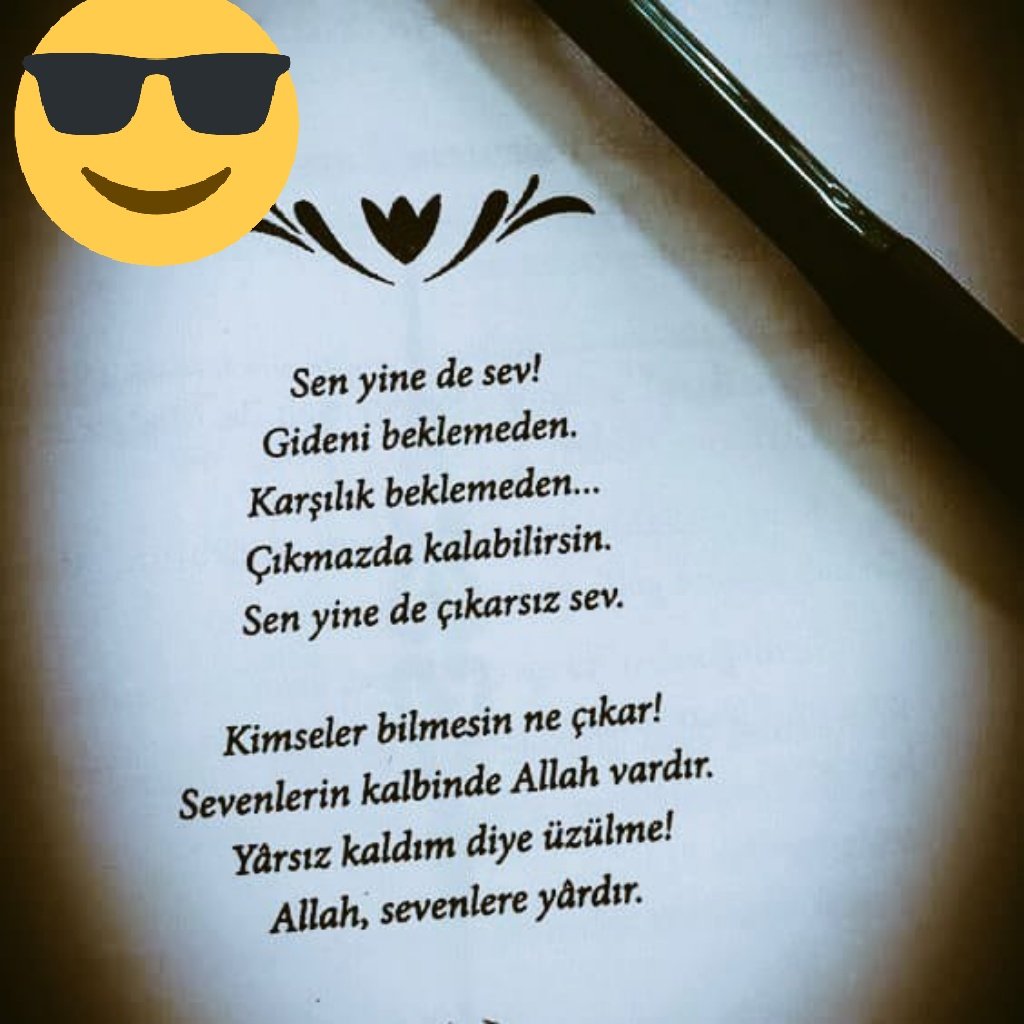 Sen yine de sev!
Gideni beklemeden.
Karşılık beklemeden...
Çıkmazda kalabilirsin.
Sen yine de çıkarsız sev.
Kimseler bilmesin ne çıkar!
Sevenlerin kalbinde Allah vardır.
Yârsız kaldım diye üzülme!
Allah, sevenlere yârdır.